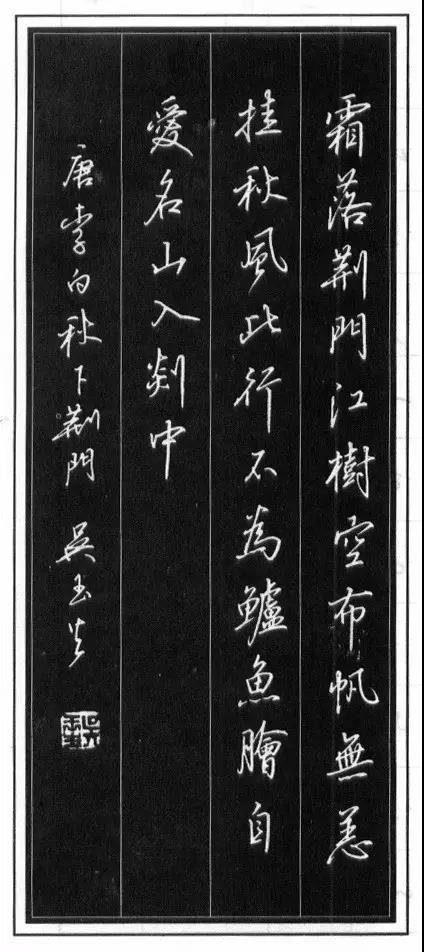 霜落荆門江樹空布帆無恙
挂秋風此行不為鱸魚膾自
愛名山入剡中
唐李白秋下荆門 吳玉生